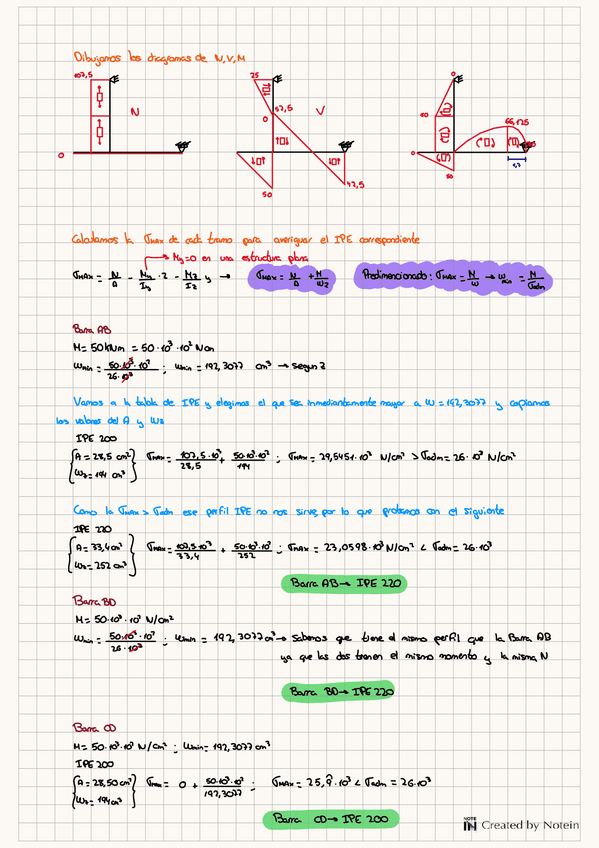 Dibujamos los diagramas de N,V,M
107,5
N
0
25
57,5
0
V
50
42,5
0
40
66,125
0
50
1,7
Calculamos la σmax de cada tramo para averiguar el IPE correspondiente
→ My=0 en una estructura plana
σMAX = N/A - My/Iy · z - Mz/Iz y → σMAX = N/A + M/Wz
Predimencionado: σMAX = M/W → Wmin = M/σadm
Barra AB
M= 50kNm = 50·10³·10² Ncm
Wmin = 50·10³·10²/26·10³ ; Wmin = 192,3077 cm³ → segun z
Vamos a la tabla de IPE y elegimos el que sea inmediantamente mayor a W = 192,3077 y copiamos
los valores del A y Wz
IPE 200
{A = 28,5 cm² Wz = 194 cm³} σMAX = 107,5·10³/28,5 + 50·10³·10²/194 ; σMAX = 29,5451·10³ N/cm² > σadm = 26·10³ N/cm²
Como la σMAX > σadm ese perfil IPE no nos sirve, por lo que probamos con el siguiente
IPE 220
{A = 33,4cm² Wz = 252 cm³} σMAX = 107,5·10³/33,4 + 50·10³·10²/252 ; σMAX = 23,0598·10³ N/cm² < σadm = 26·10³
Barra AB → IPE 220
Barra BD
M = 50·10³·10² N/cm²
Wmin = 50·10³·10²/26·10³ ; Wmin = 192,3077 cm³ → Sabemos que tiene el mismo perfil que la Barra AB
ya que las dos tienen el mismo momento y la misma N
Barra BD → IPE 220
Barra CD
M = 50·10³·10² N/cm² ; Wmin = 192,3077 cm³
IPE 200
{A = 28,50 cm² Wz = 194cm³} σmax = 0 + 50·10³·10²/192,3077 ; σMAX = 25,9̂·10³ < σadm = 26·10³
Barra CD → IPE 200
NOTE IN Created by Notein